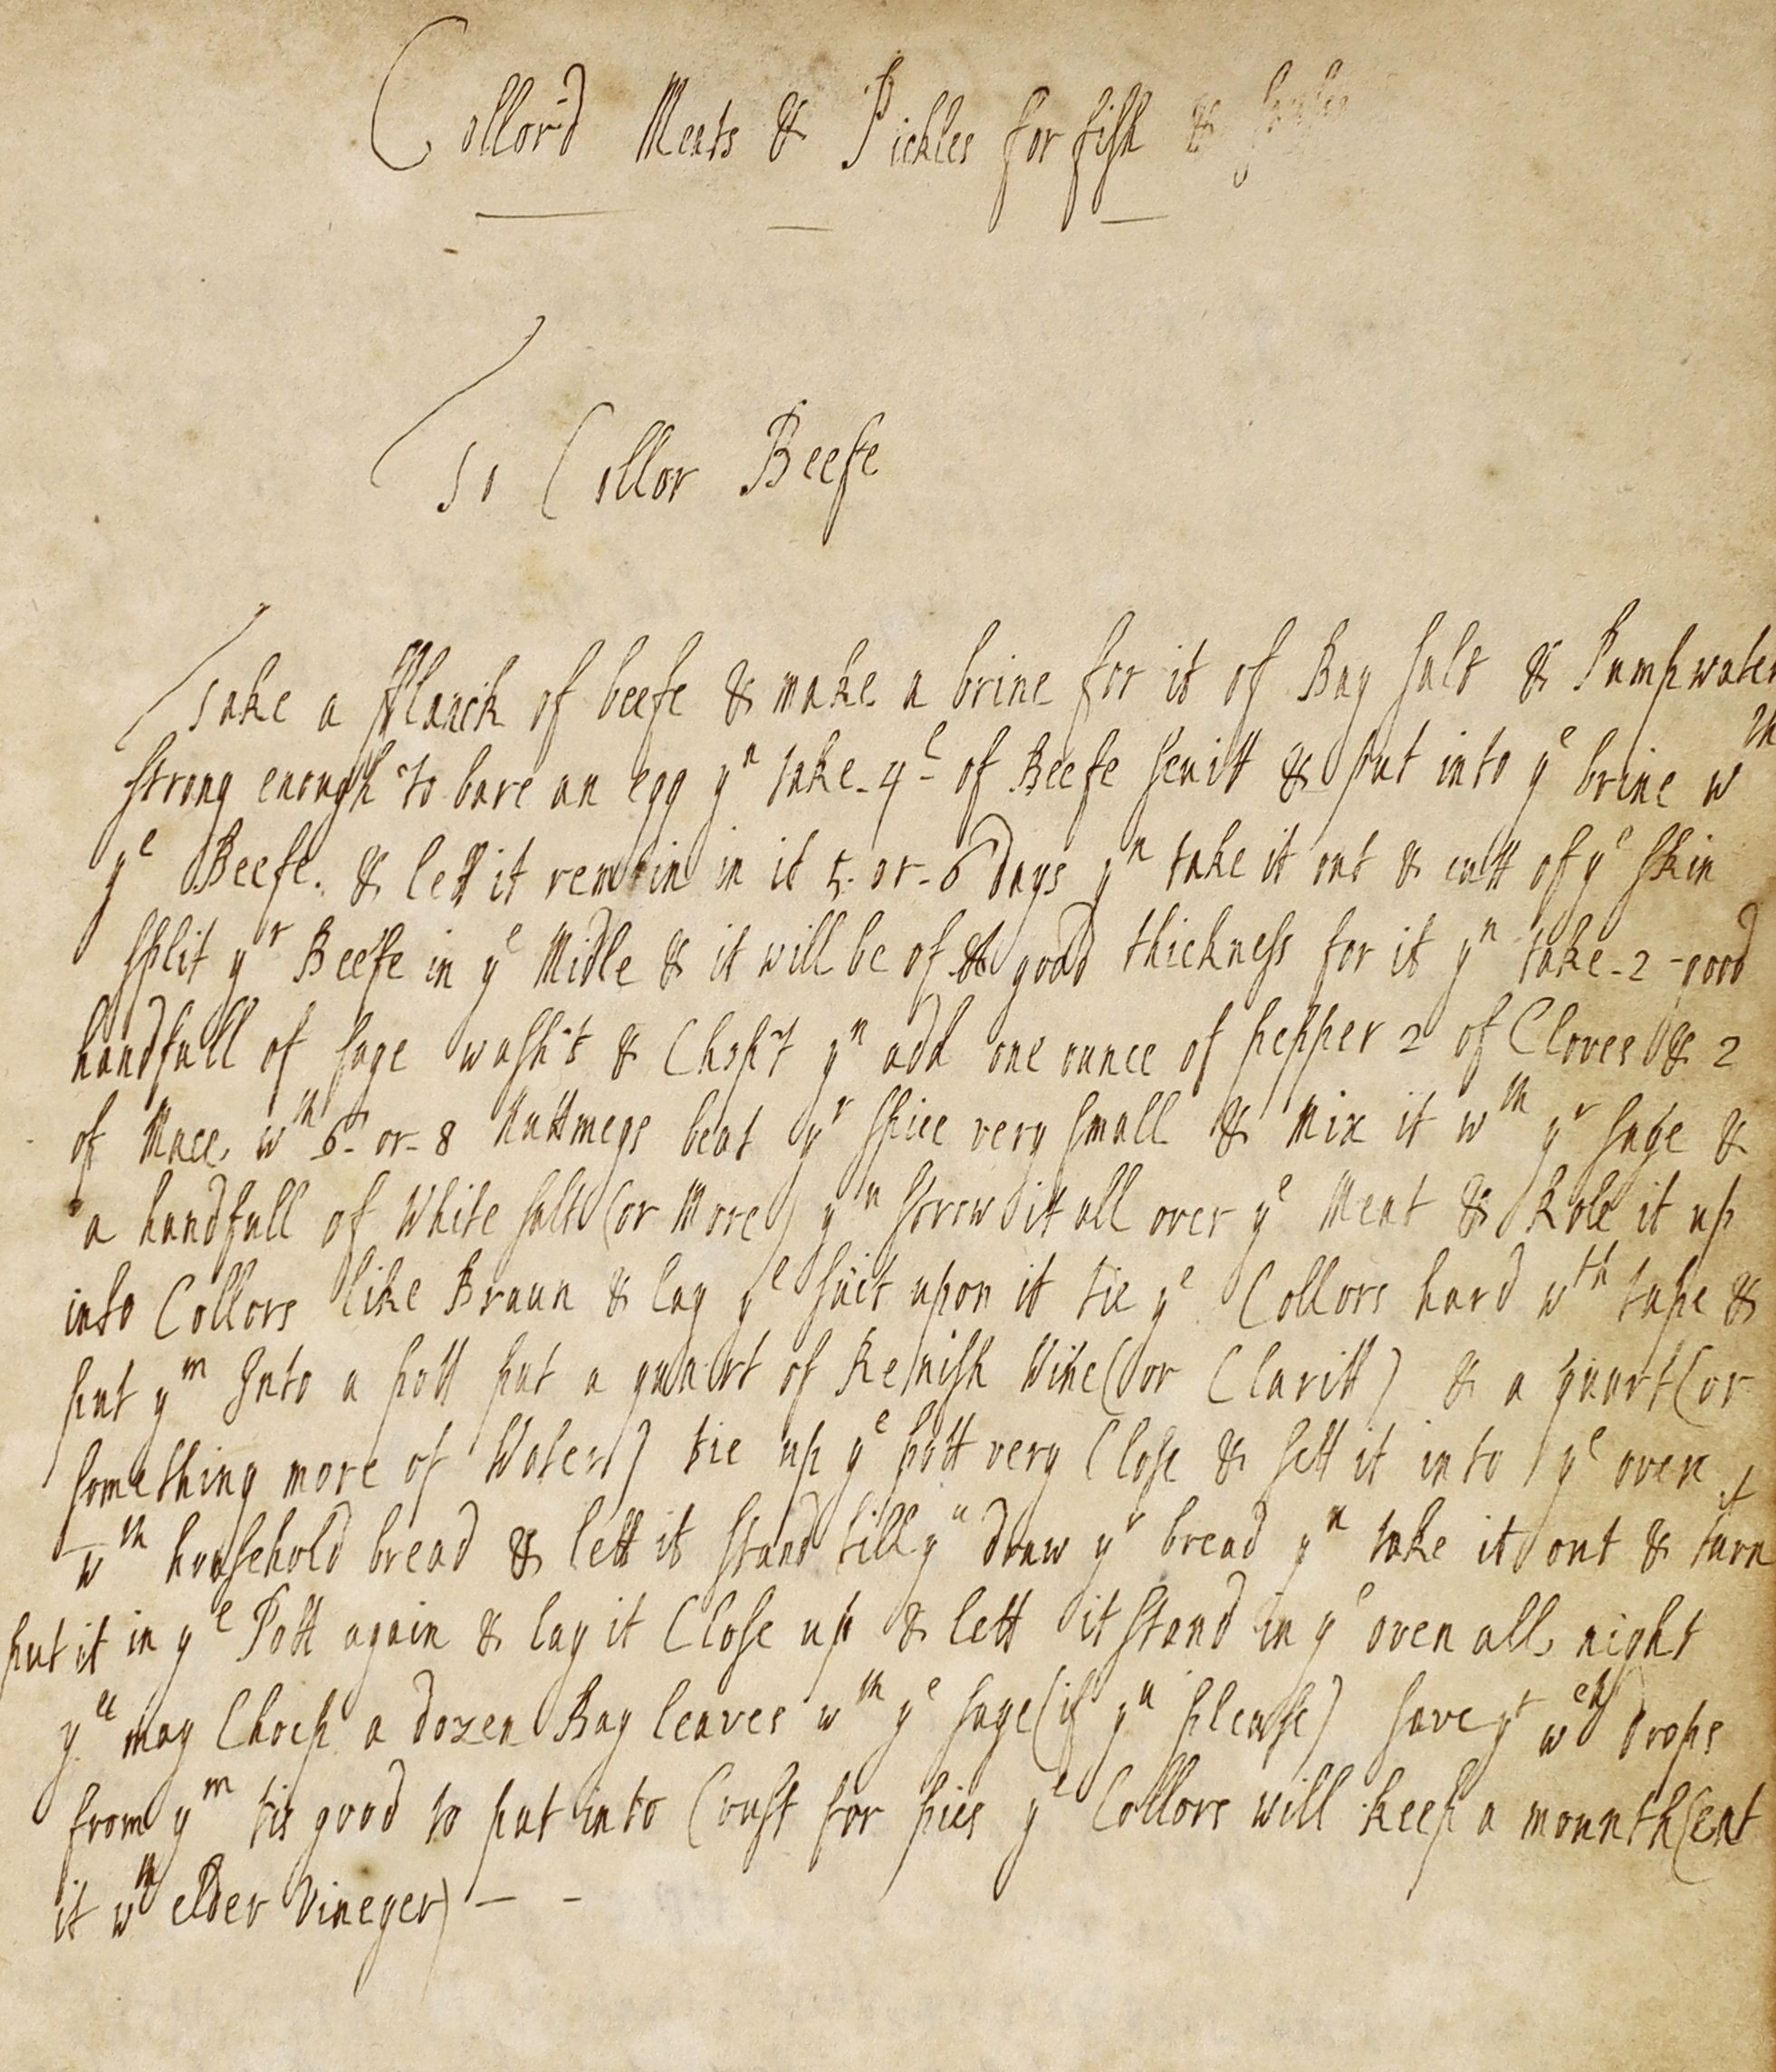 Collor'd Meats & Pickles for fish &
To Collor Beefe
Take a fflanck of beefe & make a brine for it of Bay salt & Pump water
strong enough to bare an egg yn take 4l of Beefe scuitt & put into ye brine wth
ye Beefe. & lett it remain in it 5. or. 6 Days yn take it out & cutt of ye skin
split yr Beefe in ye Midle & it will be of a good thickness for it yn take - 2 - good
handfull of sage wash't & Chop't yn add one ounce of pepper 2 of Cloves & 2
of Mace, wth 6 - or - 8 Nuttmegs beat yr spice very small & Mix it wth yr sage &
a handfull of White salt (or More) yn strow it all over ye Meat & Role it up
into Collors like Braun & lay ye suit upon it tie ye Collors hard wth tape &
put ym Into a pott put a quart of Renish Wine (or Claritt) & a quart (or
something more of Water) tie up ye pott very Close & sett it into ye oven
wth household bread & lett it stand till yu draw yr bread yn take it out & turn it
put it in ye Pott again & lay it Close up & lett it stand in ye oven all night
yu may Choep a dozen Bay leaves wth ye sage (if yu please) save yt wch Drops
from ym tis good to put into Crust for pies ye Collors will keep a mounth (eat
it wth elder Vineger) - -